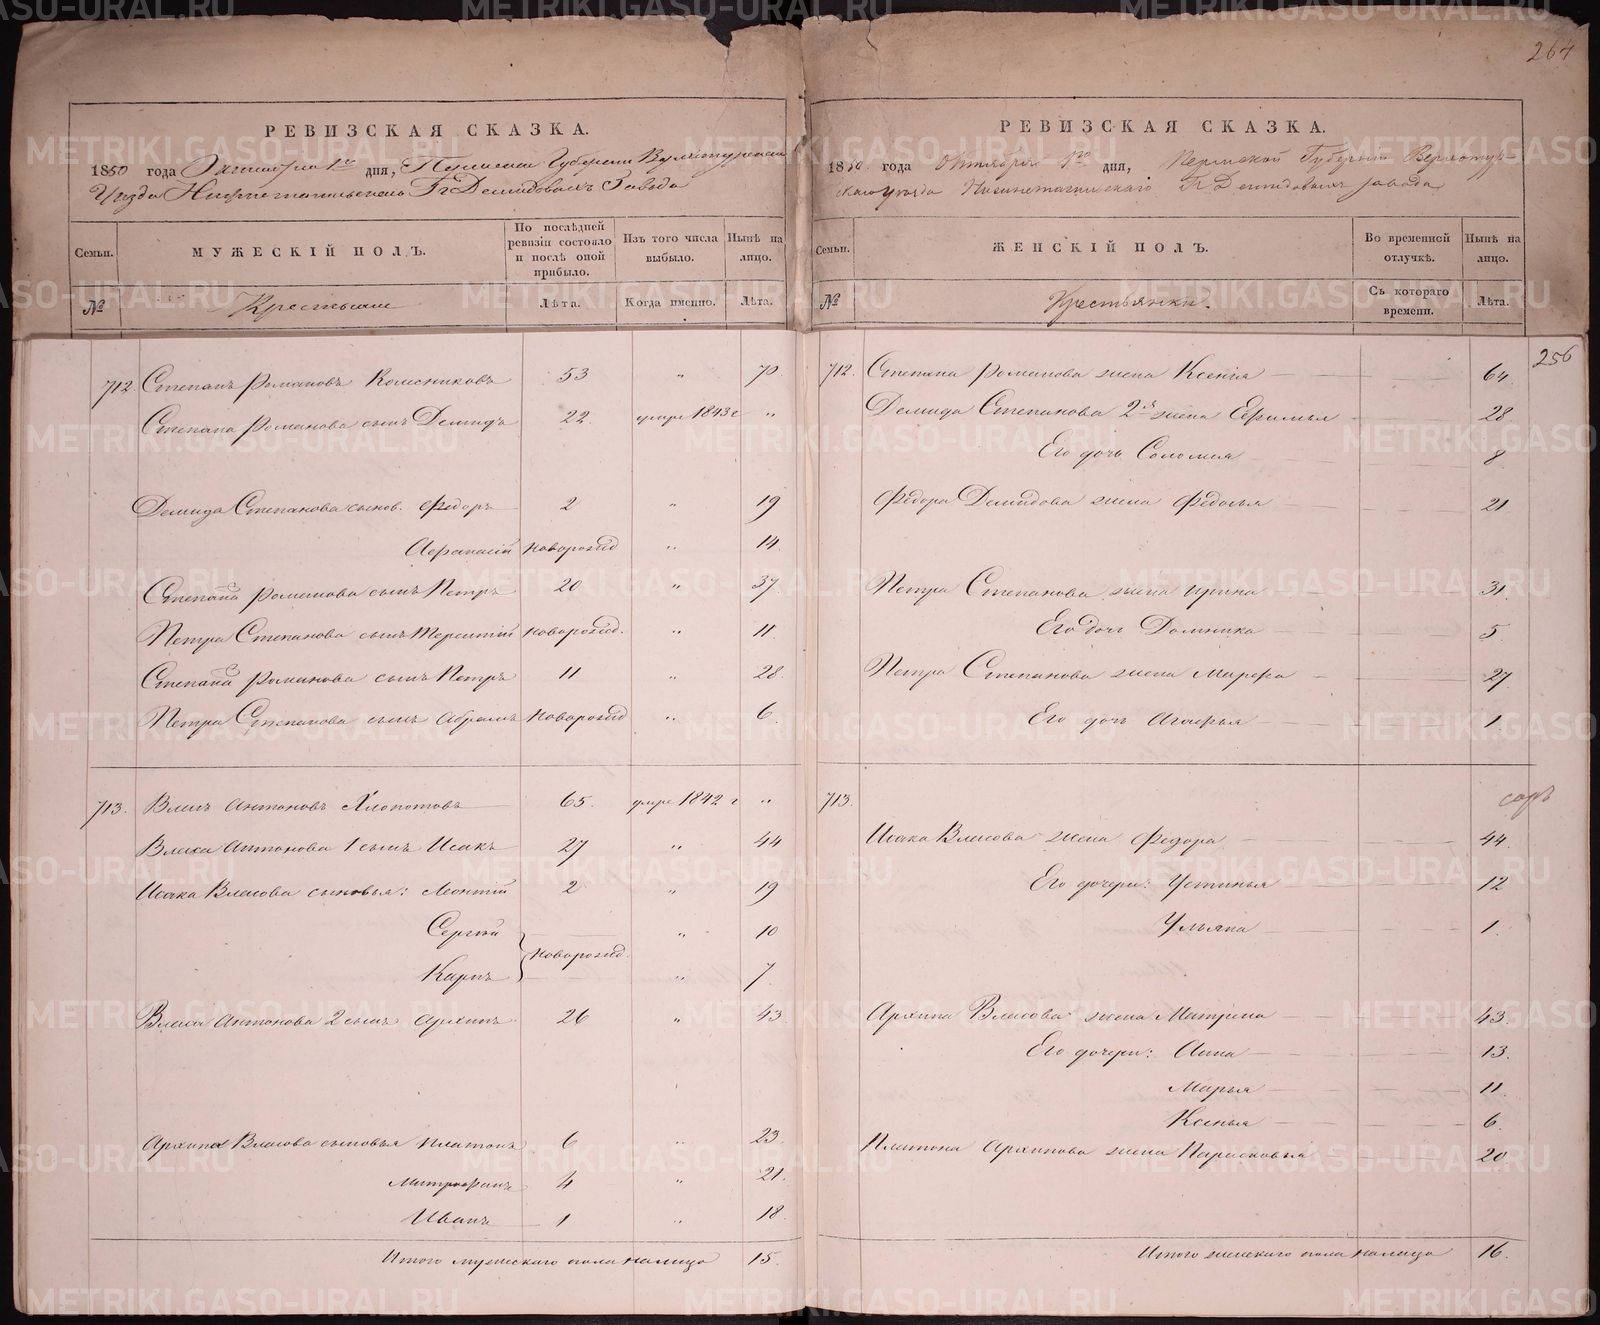 264
РЕВИЗСКАЯ СКАЗКА.
1850 года Октября 1го дня, Пермской Губернии Верхотурскаго
Уезда Нижнетагильскаго Гг Демидовыхъ Завода
Семьи. МУЖЕСКІЙ ПОЛЪ. По послѣдней ревизіи состояло и послѣ оной прибыло. Изъ того числа выбыло. Нынѣ на лицо.
№ Крестьяне Лѣта. Когда именно. Лѣта.
712 Степанъ Романовъ Колесниковъ 53 " 70
Степана Романова сынъ Демидъ 22 умре 1843 г "
Демида Степанова сынов. Федоръ 2 " 19
Афанасій новорожд " 14
Степана Романова сынъ Петръ 20 " 37
Петра Степанова сынъ Терентій новорожд. " 11
Степана Романова сынъ Петръ 11 " 28
Петра Степанова сынъ Абрамъ новорожд " 6
713. Власъ Антоновъ Хлопотовъ 65. умре 1842 г "
Власа Антонова 1 сынъ Исакъ 27 " 44
Исака Власова сыновья: Леонтій 2 " 19
Сергій " 10
новорожд.
Карпъ " 7
Власа Антонова 2 сынъ Архипъ 26 " 43
Архипа Власова сыновья Платонъ 6 " 23
Митрофанъ 4 " 21
Иванъ 1 " 18
Итого мужескаго пола налицо 15.
РЕВИЗСКАЯ СКАЗКА.
1850 года Октября 1го дня, Пермской Губерніи Верхотур-
скаго уезда Нижнетагильскаго Гг Демидовыхъ завода
Семьи. ЖЕНСКІЙ ПОЛЪ. Во временной отлучкѣ. Нынѣ на лицо.
№ Крестьянки. Съ котораго времени. Лѣта.
256
712. Степана Романова жена Ксенія 64
Демида Степанова 2я жена Ефимья 28
Его дочь Соломия 8
Федора Демидова жена Федосья 21
Петра Степанова жена Ирина 31
Его дочь Домника 5
Петра Степанова жена Марфа 27
Его дочь Агафья 1
713.
Исака Власова жена Федора 44
Его дочери: Устинья 12
Ульяна 1
Архипа Власова жена Матрена 43
Его дочери: Анна 13
Марья 11
Ксенья 6
Платона Архипова жена Парасковья 20
Итого женскаго пола налицо 16.
METRIKI.GASO-URAL.RU